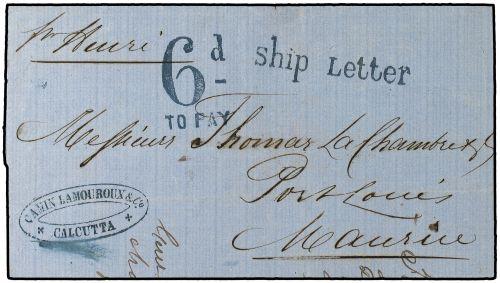 pr Henri
6d
TO PAY
Ship Letter
Messieurs Thomas La Chambre & Co
Port Louis
Maurice
CAMIN LAMOUROUX & Co
CALCUTTA